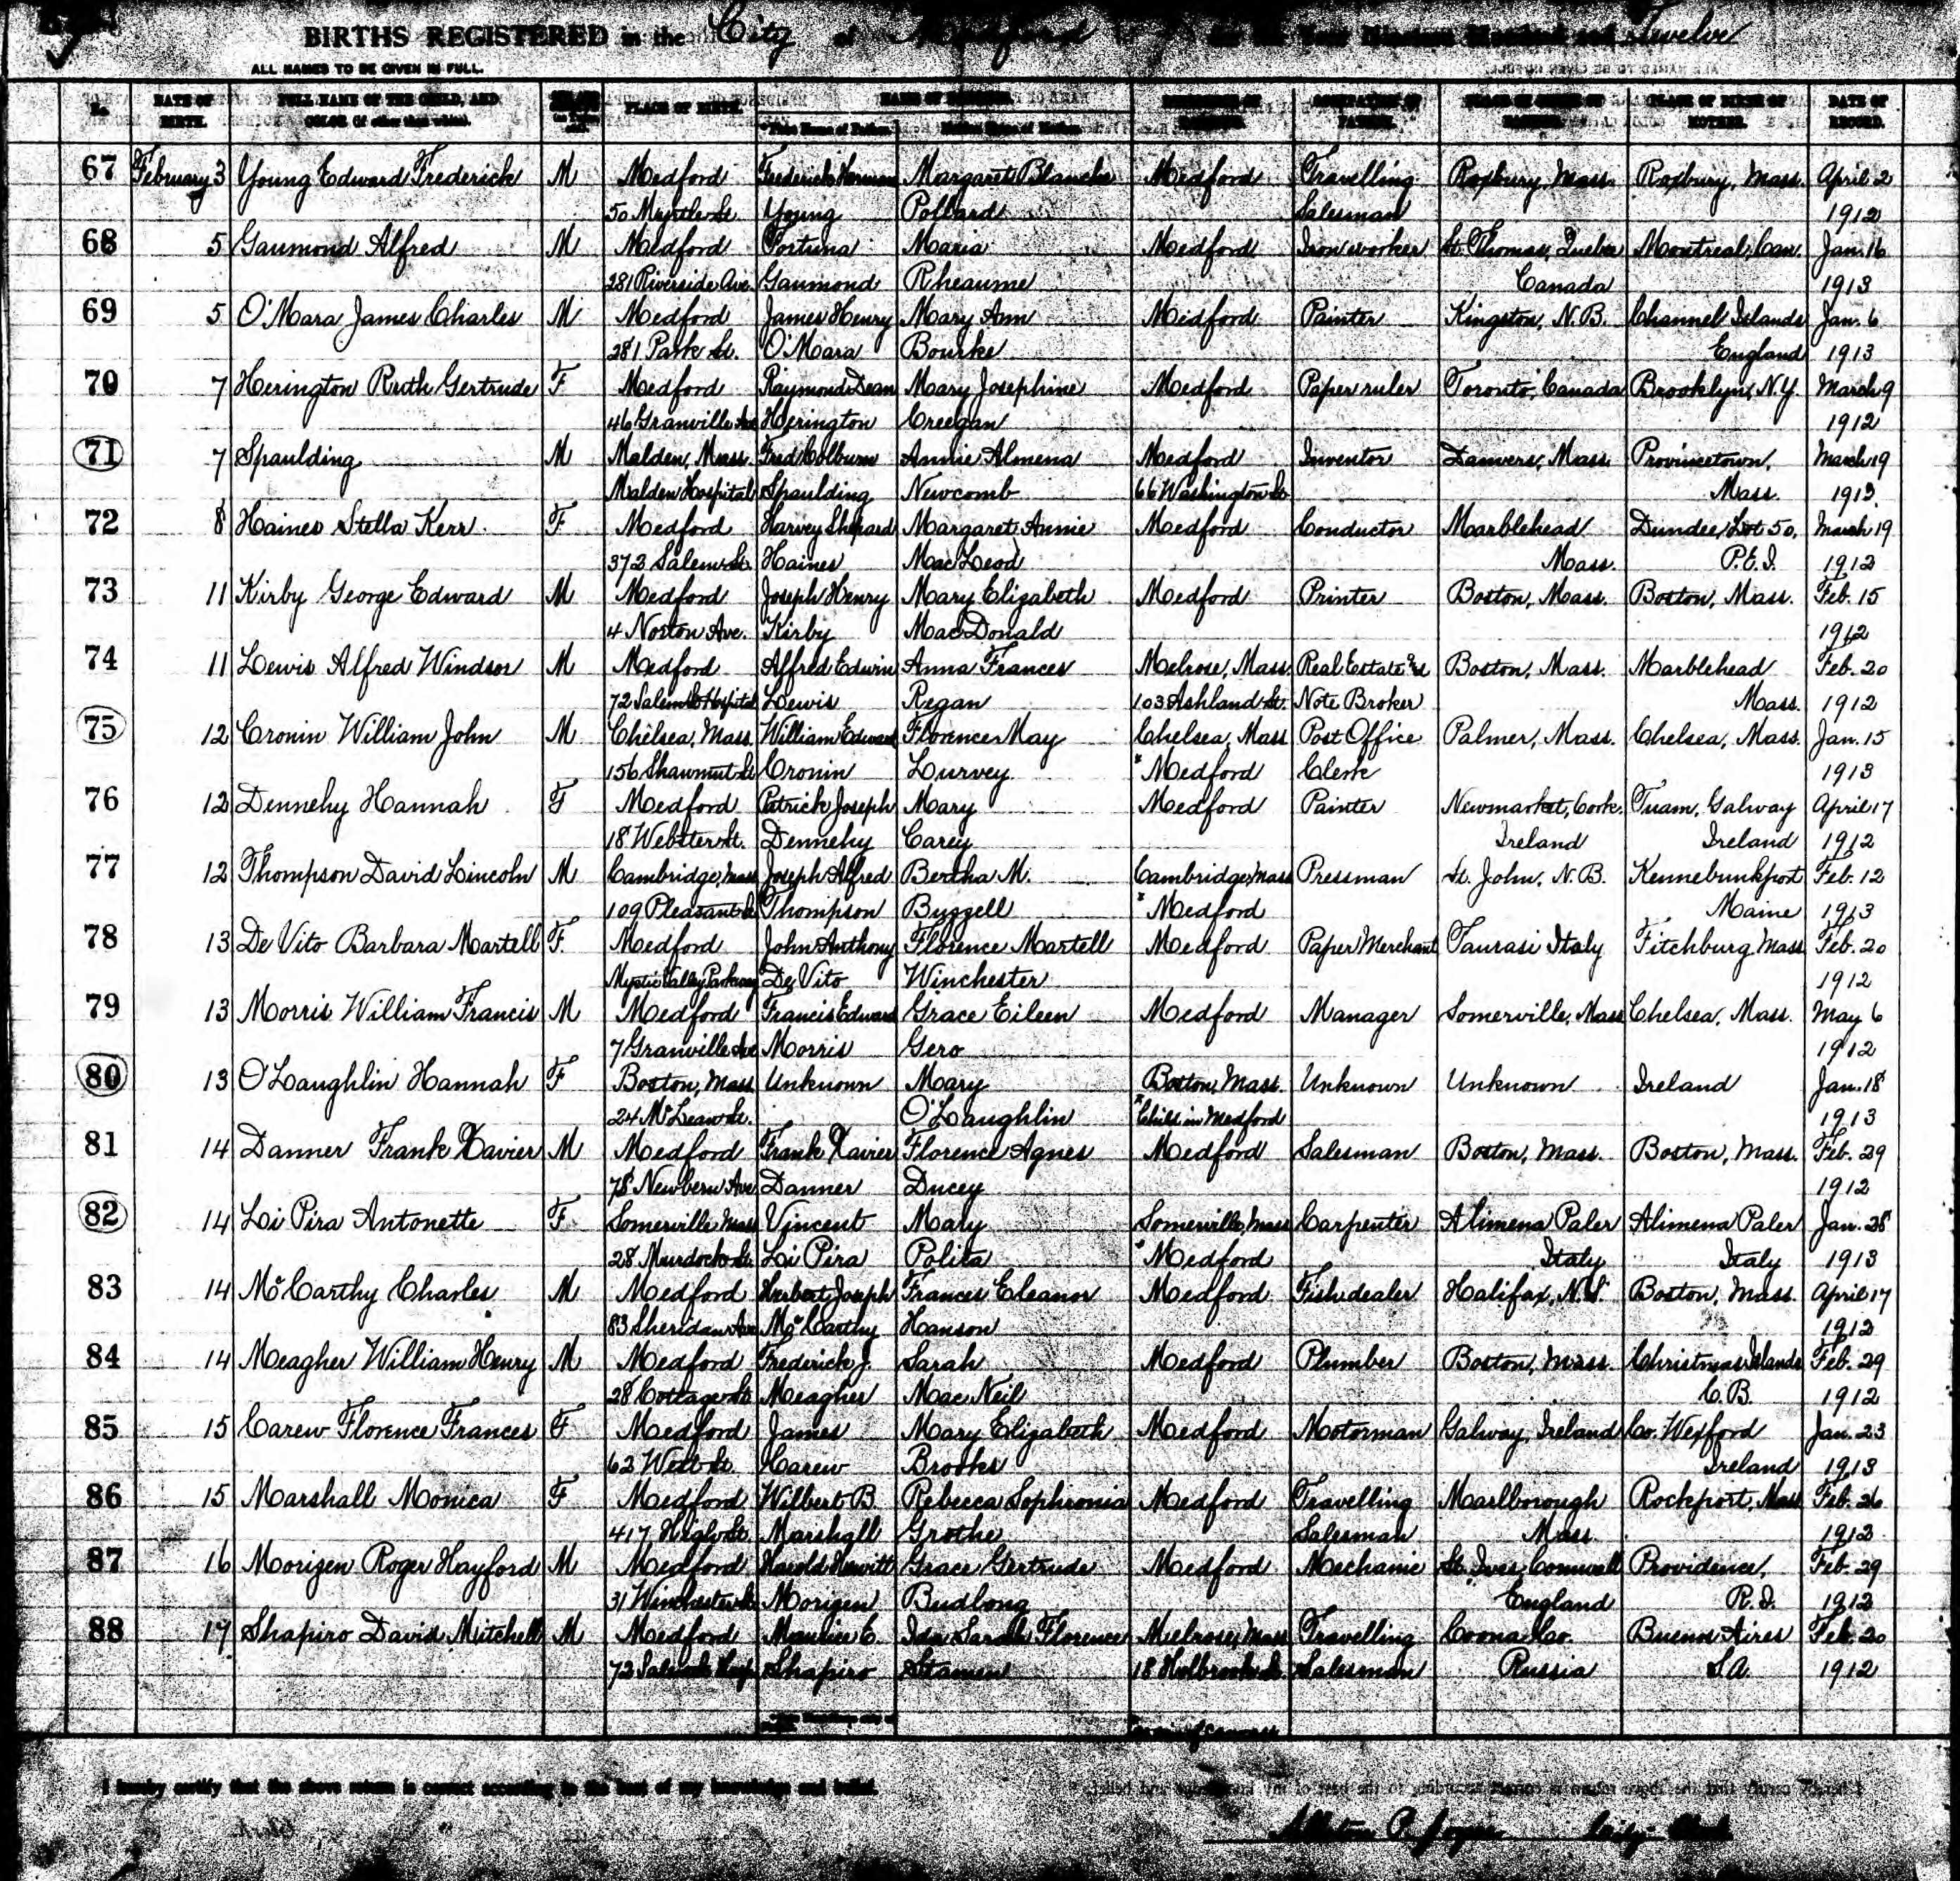 BIRTHS REGISTERED in the City of Medford for the Year Nineteen Hundred and Twelve
ALL NAMES TO BE GIVEN IN FULL.
No. DATE OF BIRTH. FULL NAME OF THE CHILD, AND COLOR (if other than white). PLACE OF BIRTH. PLACE OF BIRTH OF MOTHER. DATE OF RECORD.
67 February 3 Young Edward Frederick M Medford Frederick Herman Margaret Blanche Medford Travelling Roxbury, Mass. Roxbury, Mass. April 2
50 Myrtle St. Young Pollard Salesman 1912
68 5 Gaumond Alfred M Medford Fortuna Maria Medford Iron worker St. Thomas, Quebec Montreal, Can. Jan. 16
281 Riverside Ave. Gaumond Rheaume Canada 1913
69 5 O'Mara James Charles M Medford James Henry Mary Ann Medford Painter Kingston, N.B. Channel Islands Jan. 6
281 Park St. O'Mara Bourke England 1913
70 7 Herington Ruth Gertrude F Medford Raymond Dean Mary Josephine Medford Paper ruler Toronto, Canada Brooklyn, N.Y. March 9
46 Granville Ave Herington Creegan 1912
71 7 Spaulding M Malden, Mass. Fred Colburn Annie Almena Medford Inventor Danvers, Mass. Provincetown, March 19
Malden Hospital Spaulding Newcomb 66 Washington St Mass. 1913
72 8 Haines Stella Kerr F Medford Harvey Shepard Margaret Annie Medford Conductor Marblehead Dundee, Lot 50, March 19
372 Salem St. Haines MacLeod Mass. P.E.I. 1912
73 11 Kirby George Edward M Medford Joseph Henry Mary Elizabeth Medford Printer Boston, Mass. Boston, Mass. Feb. 15
4 Norton Ave. Kirby MacDonald 1912
74 11 Lewis Alfred Windsor M Medford Alfred Edwin Anna Frances Melrose, Mass. Real Estate and Boston, Mass. Marblehead Feb. 20
72 Salem St Hospital Lewis Regan 103 Ashland St. Note Broker Mass. 1912
75 12 Cronin William John M Chelsea, Mass. William Edward Florence May Chelsea, Mass Post Office Palmer, Mass. Chelsea, Mass. Jan. 15
156 Shawmut St Cronin Lurvey * Medford Clerk 1913
76 12 Dennehy Hannah F Medford Patrick Joseph Mary Medford Painter Newmarket, Cork. Tuam, Galway April 17
18 Webster St. Dennehy Carey Ireland Ireland 1912
77 12 Thompson David Lincoln M Cambridge, Mass Joseph Alfred Bertha M. Cambridge, Mass Pressman St. John, N.B. Kennebunkport Feb. 12
109 Pleasant St Thompson Buzzell * Medford Maine 1913
78 13 De Vito Barbara Martell F. Medford John Anthony Florence Martell Medford Paper Merchant Taurasi Italy Fitchburg Mass Feb. 20
Mystic Valley Parkway De Vito Winchester 1912
79 13 Morris William Francis M Medford Francis Edward Grace Eileen Medford Manager Somerville, Mass Chelsea, Mass. May 6
7 Granville Ave Morris Gero 1912
80 13 O'Laughlin Hannah F Boston, Mass Unknown Mary Boston, Mass. Unknown Unknown Ireland Jan. 18
24 McLean St. O'Laughlin * Child in Medford 1913
81 14 Danner Frank Xavier M Medford Frank Xavier Florence Agnes Medford Salesman Boston, Mass. Boston, Mass. Feb. 29
78 Newbern Ave Danner Ducey 1912
82 14 Li Pira Antonette F Somerville Mass Vincent Mary Somerville, Mass Carpenter Alimena Paler Alimena Paler Jan. 28
28 Murdock St. Li Pira Polita * Medford Italy Italy 1913
83 14 McCarthy Charles M Medford Herbert Joseph Frances Eleanor Medford Fish dealer Halifax, N.S. Boston, Mass. April 17
83 Sheridan Ave McCarthy Hanson 1912
84 14 Meagher William Henry M Medford Frederick J. Sarah Medford Plumber Boston, Mass. Christmas Islands Feb. 29
28 Cottage St Meagher MacNeil C.B. 1912
85 15 Carew Florence Frances F Medford James Mary Elizabeth Medford Motorman Galway, Ireland Co. Wexford Jan. 23
62 West St. Carew Brooks Ireland 1913
86 15 Marshall Monica F Medford Wilbert B. Rebecca Sophronia Medford Travelling Marlborough Rockport, Mass Feb. 26
417 High St. Marshall Grothe Salesman Mass. 1912
87 16 Morizen Roger Hayford M Medford Harold Hewitt Grace Gertrude Medford Mechanic St. Ives, Cornwall Providence, Feb. 29
31 Winchester St Morizen Budlong England R.I. 1912
88 17 Shapiro David Mitchell M Medford Maurice E. Ida Sarah Florence Melrose, Mass Travelling Coona Co. Buenos Aires Feb. 20
72 Salem St Hosp Shapiro Stamen 18 Holbrook St. Salesman Russia S.A. 1912
I hereby certify that the above return is correct according to the best of my knowledge and belief.
Allston P. Joyce City Clerk